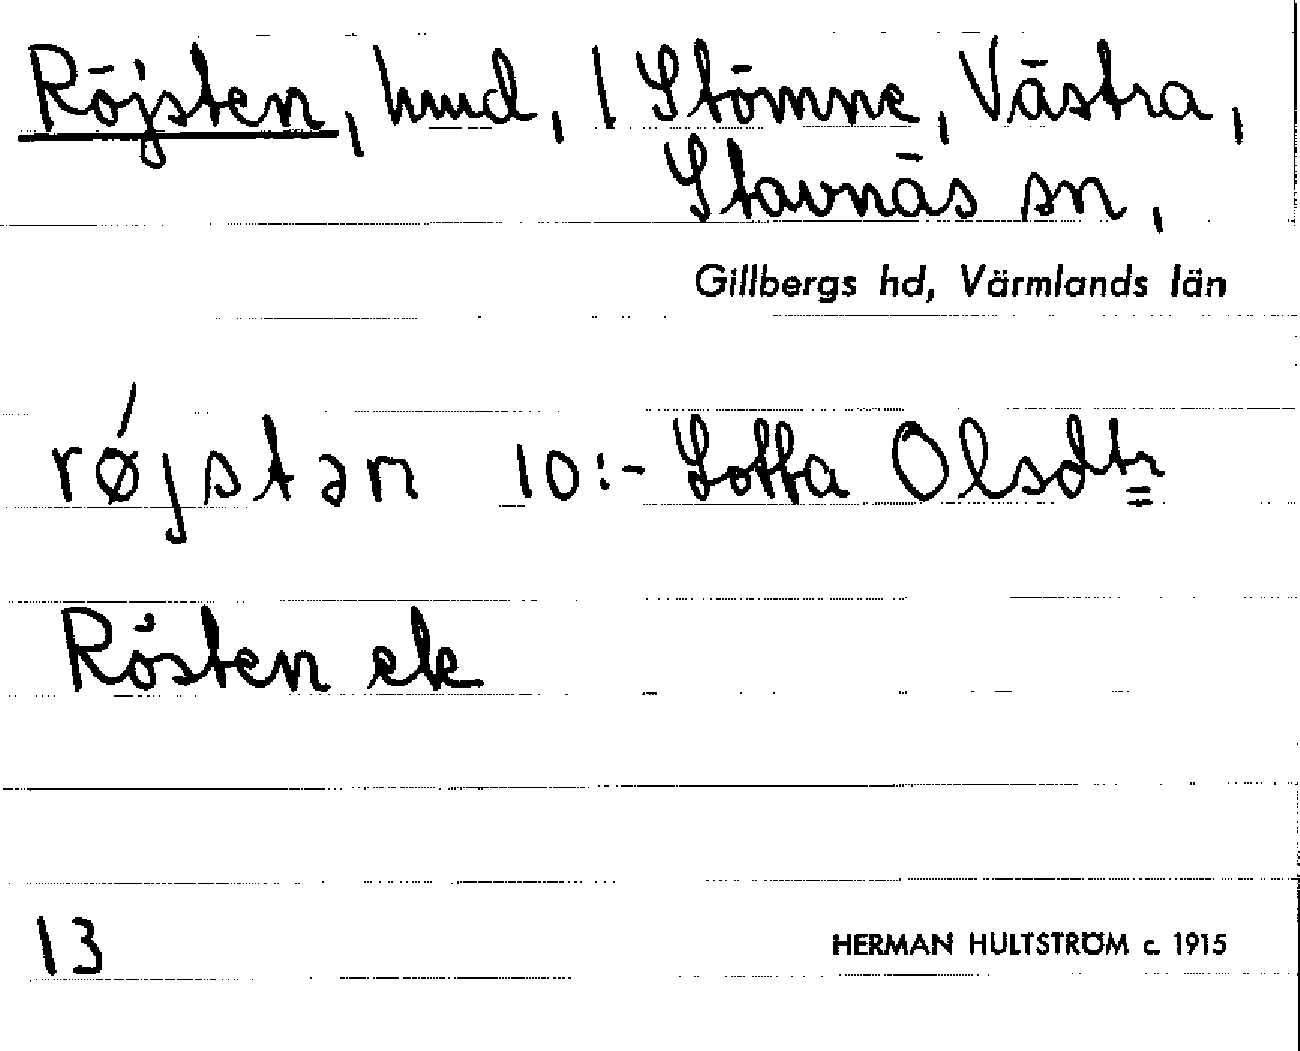 Röjsten, hmd, 1 Stömne, Västra,
Stavnäs sn,
Gillbergs hd, Värmlands län
røjstən 10:- Lotta Olsdtr
Rösten ek
13
HERMAN HULTSTRÖM c. 1915